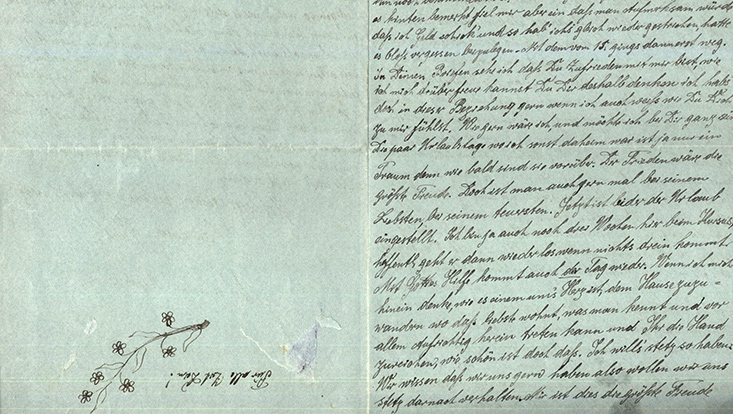 es hinten bemerkt fiel mir aber ein daß man aufmerksam würde
daß ich Geld schick' und so hab' ich's gleich wieder gestrichen, hatte
es bloß vergessen beizulegen. Mit dem vom 15. gings dann erst weg.
In Deinen Briefen sehe ich daß Du zufrieden mit mir bist, wie
ich mich darüber freue kannst Du Dir deshalb denken ich habe
doch in dieser Beziehung gern wenn ich auch weiß wie Du Dich
zu mir fühlst. Wie gern wär ich, und möchte ich bei Dir ganz sein
Die paar Urlaubstage wo ich sonst daheim war ist ja nur ein
Traum denn wie bald sind sie vorüber. Der Frieden wäre die
größte Freude. Doch ist man auch gern mal bei seinem
Liebsten, bei seinem teuersten. Jetzt ist leider der Urlaub
eingestellt. Ich bin ja auch noch drei Wochen hier beim Kursus,
hoffentl. geht er dann wieder los wenn nichts drein kommt
Mit Gottes Hilfe kommt auch der Tag wieder. Wenn ich mich
hinein denke, wie es einem um's Herz ist, dem Hause zuzu-
wandern wo daß Liebste wohnt, was man kennt und vor
allem aufrichtig herein treten kann und Ihr die Hand
zureichen, wie schön ist doch daß. Ich will's stets so haben.
Wir wissen daß wir uns gern haben also wollen wir uns
stets darnach verhalten. Mir ist dies die größte Freude
Für alle Zeit Dein!